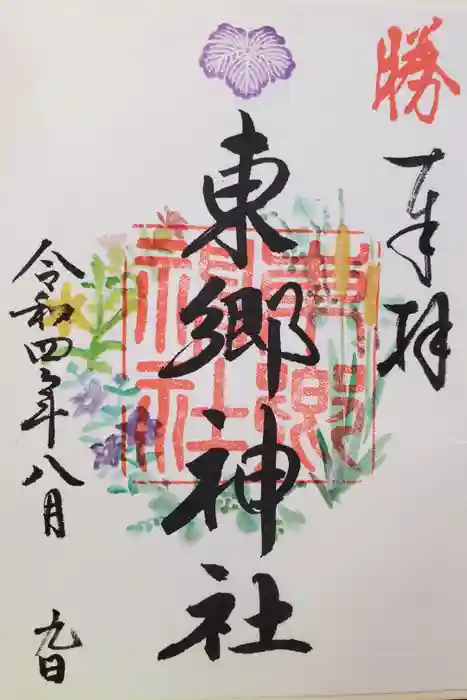 勝
奉拝
東郷神社
東郷神社
令和四年八月九日